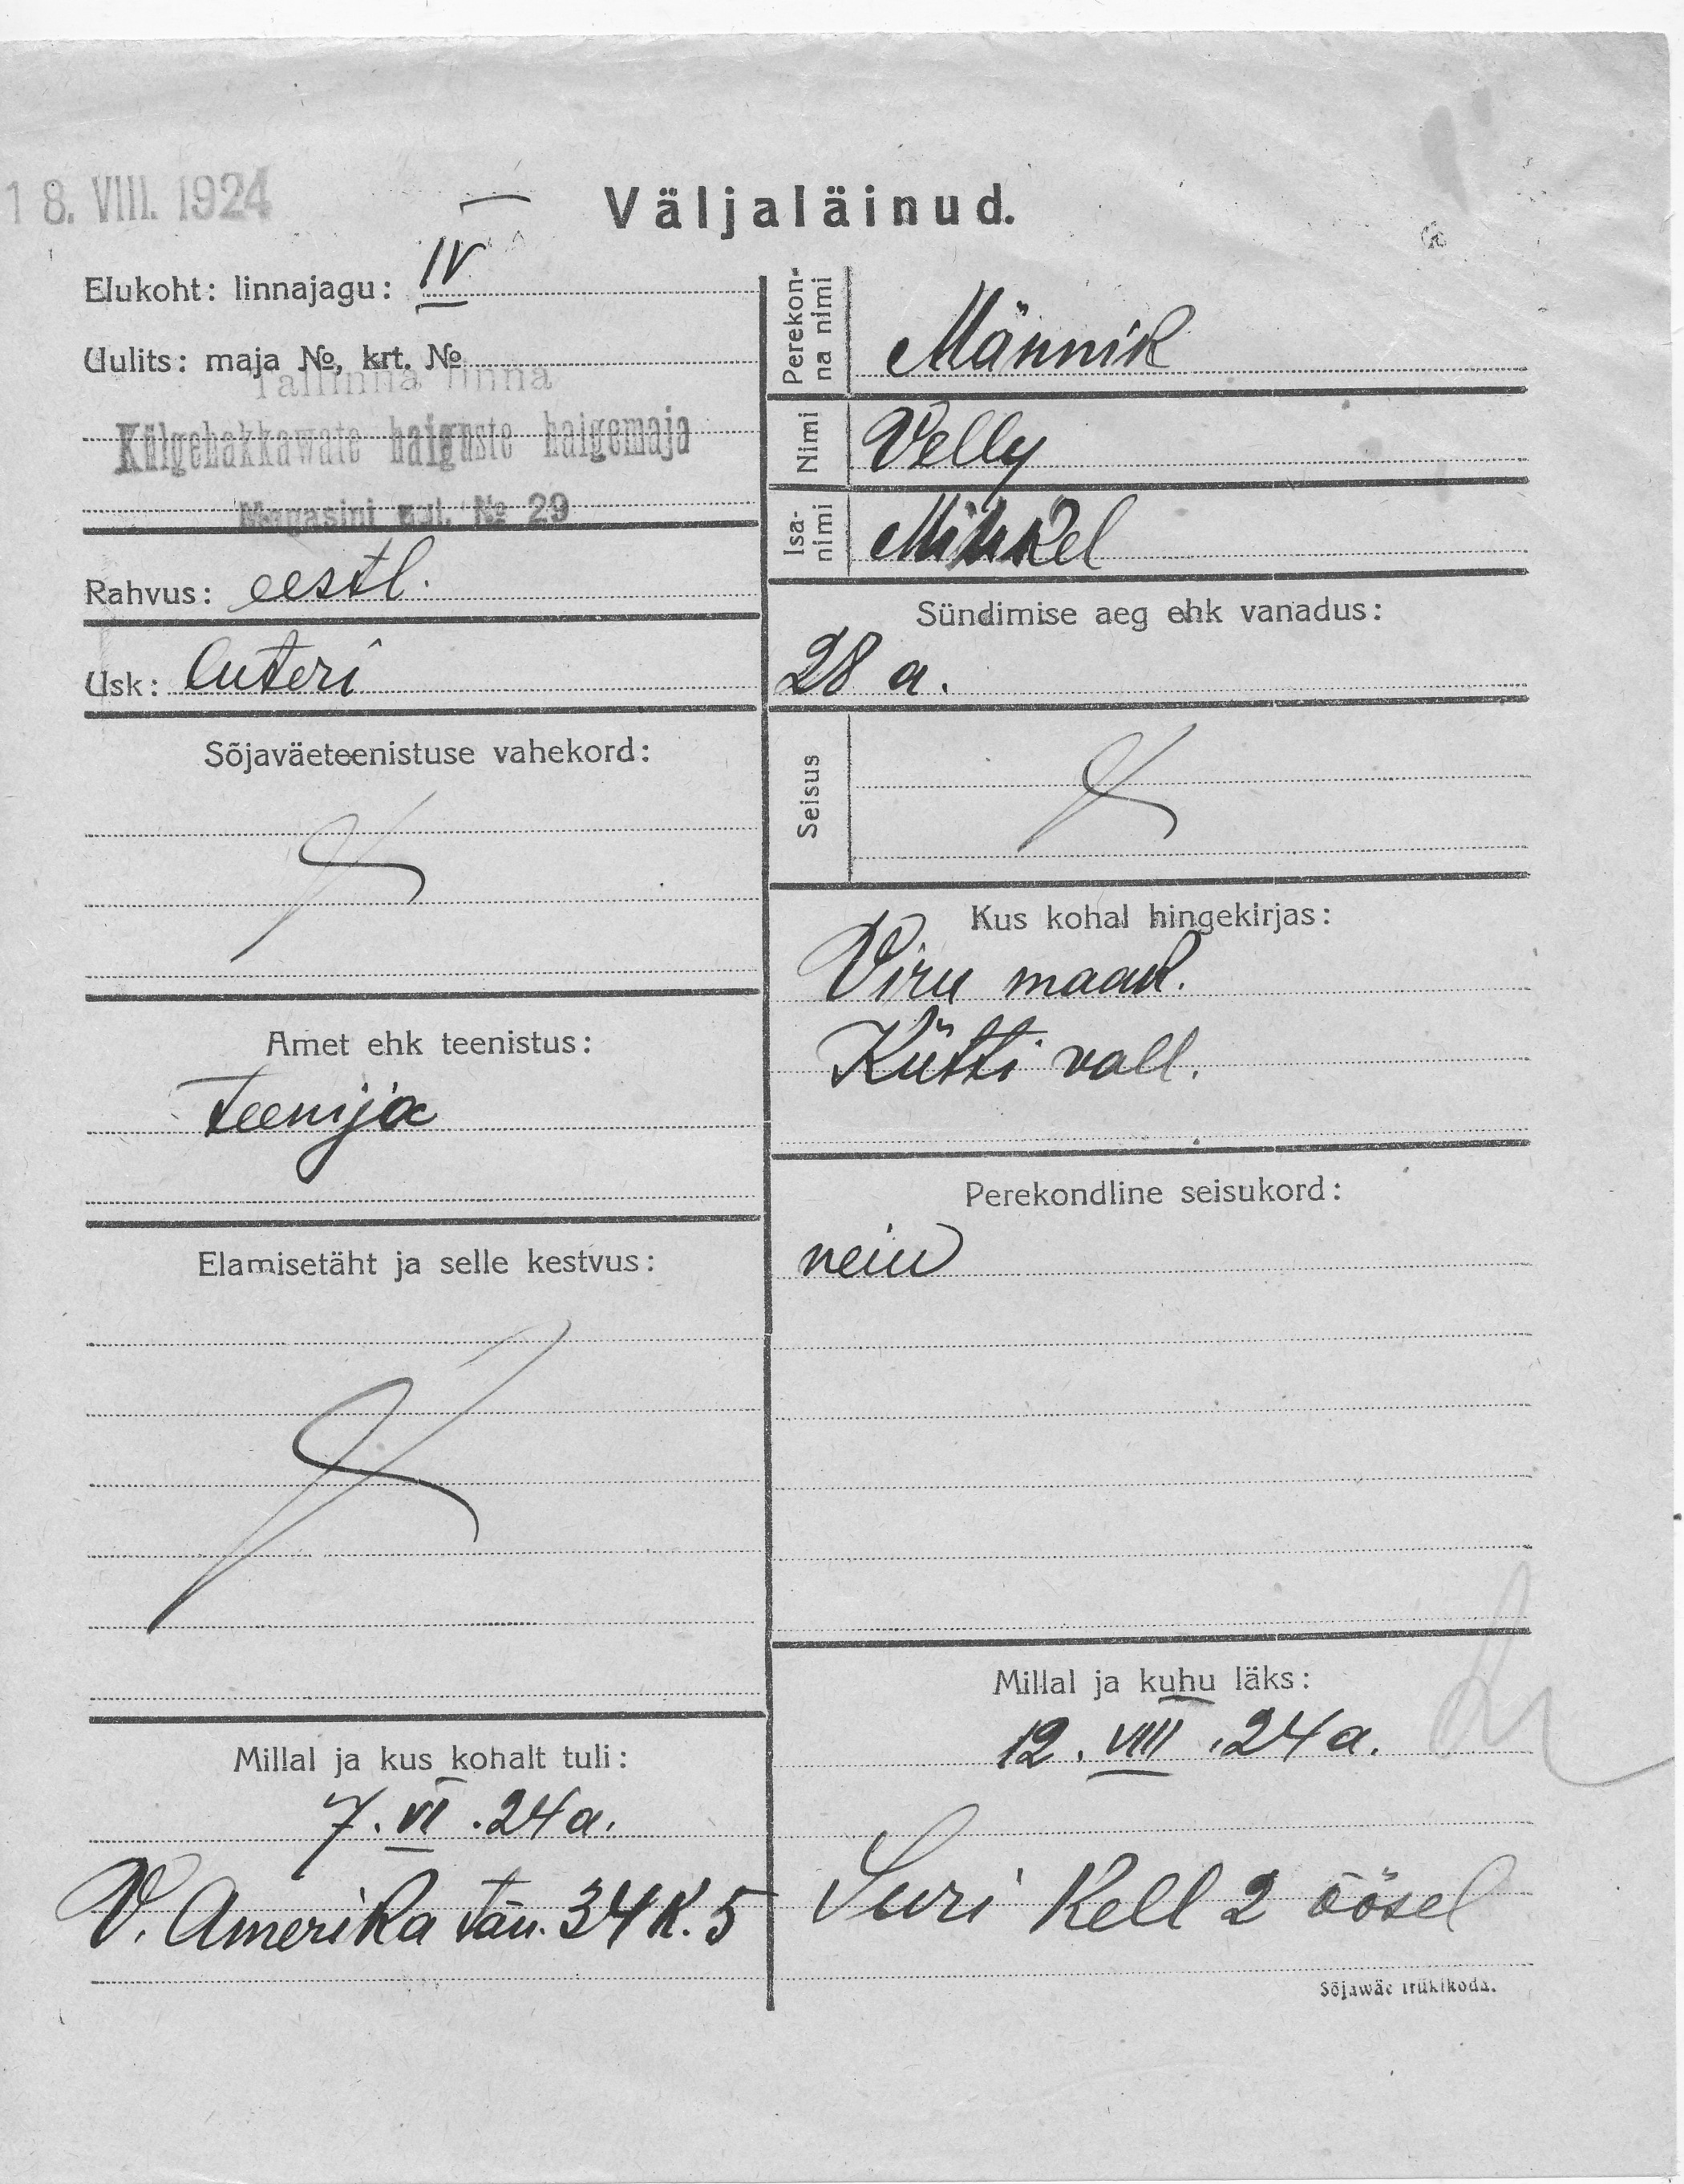 18. VIII. 1924
Väljaläinud.
Elukoht: linnajagu: IV
Uulits: maja №, krt. №
Tallinna linna
Külgehakkawate haiguste haigemaja
Magasini uul. № 29
Rahvus: eestl.
Usk: luteri
Sõjaväeteenistuse vahekord:
Amet ehk teenistus:
teenija
Elamisetäht ja selle kestvus:
Millal ja kus kohalt tuli:
7. VI .24 a.
V. Amerika tän. 34 K. 5
Perekon-
na nimi
Männik
Nimi
Velly
Isa-
nimi
Mihkel
Sündimise aeg ehk vanadus:
28 a.
Seisus
Kus kohal hingekirjas:
Viru maak.
Kütti vall.
Perekondline seisukord:
neiu
Millal ja kuhu läks:
12. VIII .24 a.
Suri kell 2 öösel
Sõjawäe trükikoda.